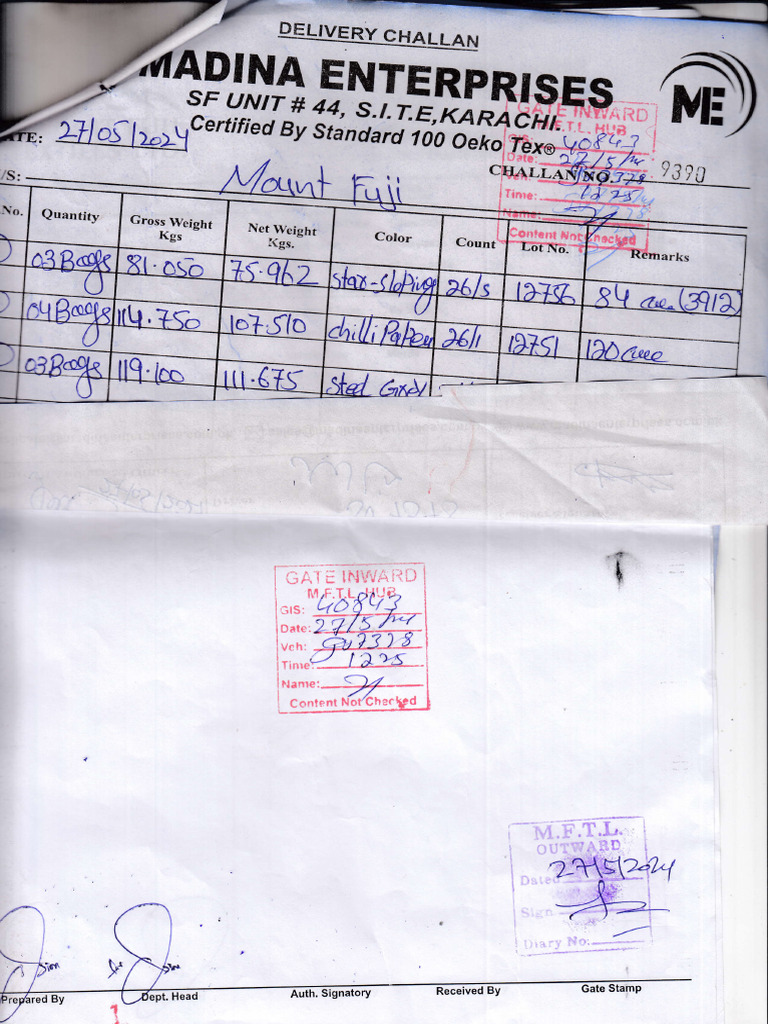 DELIVERY CHALLAN
MADINA ENTERPRISES
SF UNIT # 44, S.I.T.E, KARACHI
Certified By Standard 100 Oeko Tex®
ME
DATE: 27/05/2024
CHALLAN NO. 9390
M/S: Mount Fuji
GATE INWARD
M.F.T.L. HUB
GIS: 40843
Date: 27/5/24
Veh: 7328
Time: 1225
Name:
Content Not Checked
No. Quantity Gross Weight Kgs Net Weight Kgs. Color Count Lot No. Remarks
03 Bags 81.050 75.962 star-sloping 26/s 12756 84 (3912)
04 Bags 114.750 107.510 chilli 26/1 12751 120
03 Bags 119.100 111.675
GATE INWARD
M.F.T.L. HUB
GIS: 40843
Date: 27/5/24
Veh: 7328
Time: 1225
Name:
Content Not Checked
M.F.T.L.
OUTWARD
Dated 27/5/2024
Sign
Diary No:
Prepared By Dept. Head Auth. Signatory Received By Gate Stamp
1